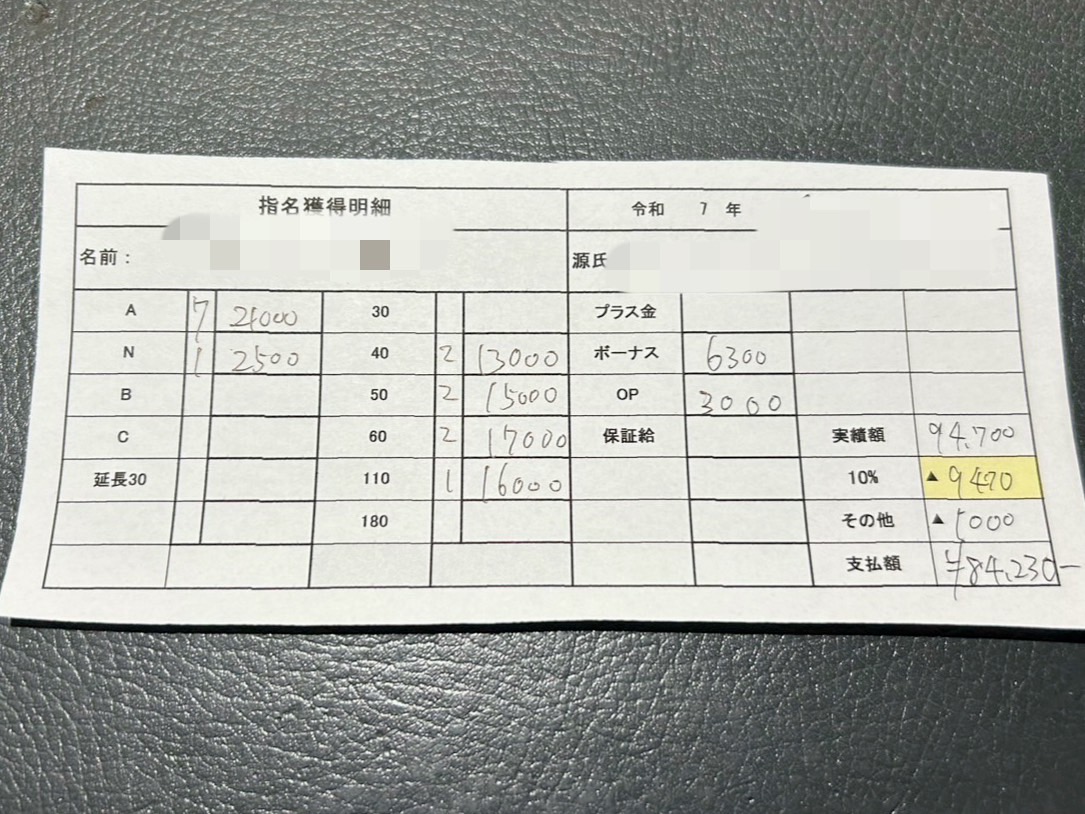 指名獲得明細 令和 7 年
名前： 源氏
A 7 21000 30 プラス金
N 1 2500 40 2 13000 ボーナス 6300
B 50 2 15000 OP 3000
C 60 2 17000 保証給 実績額 94,700
延長30 110 1 16000 10% ▲ 9470
180 その他 ▲ 1000
支払額 ¥84,230-